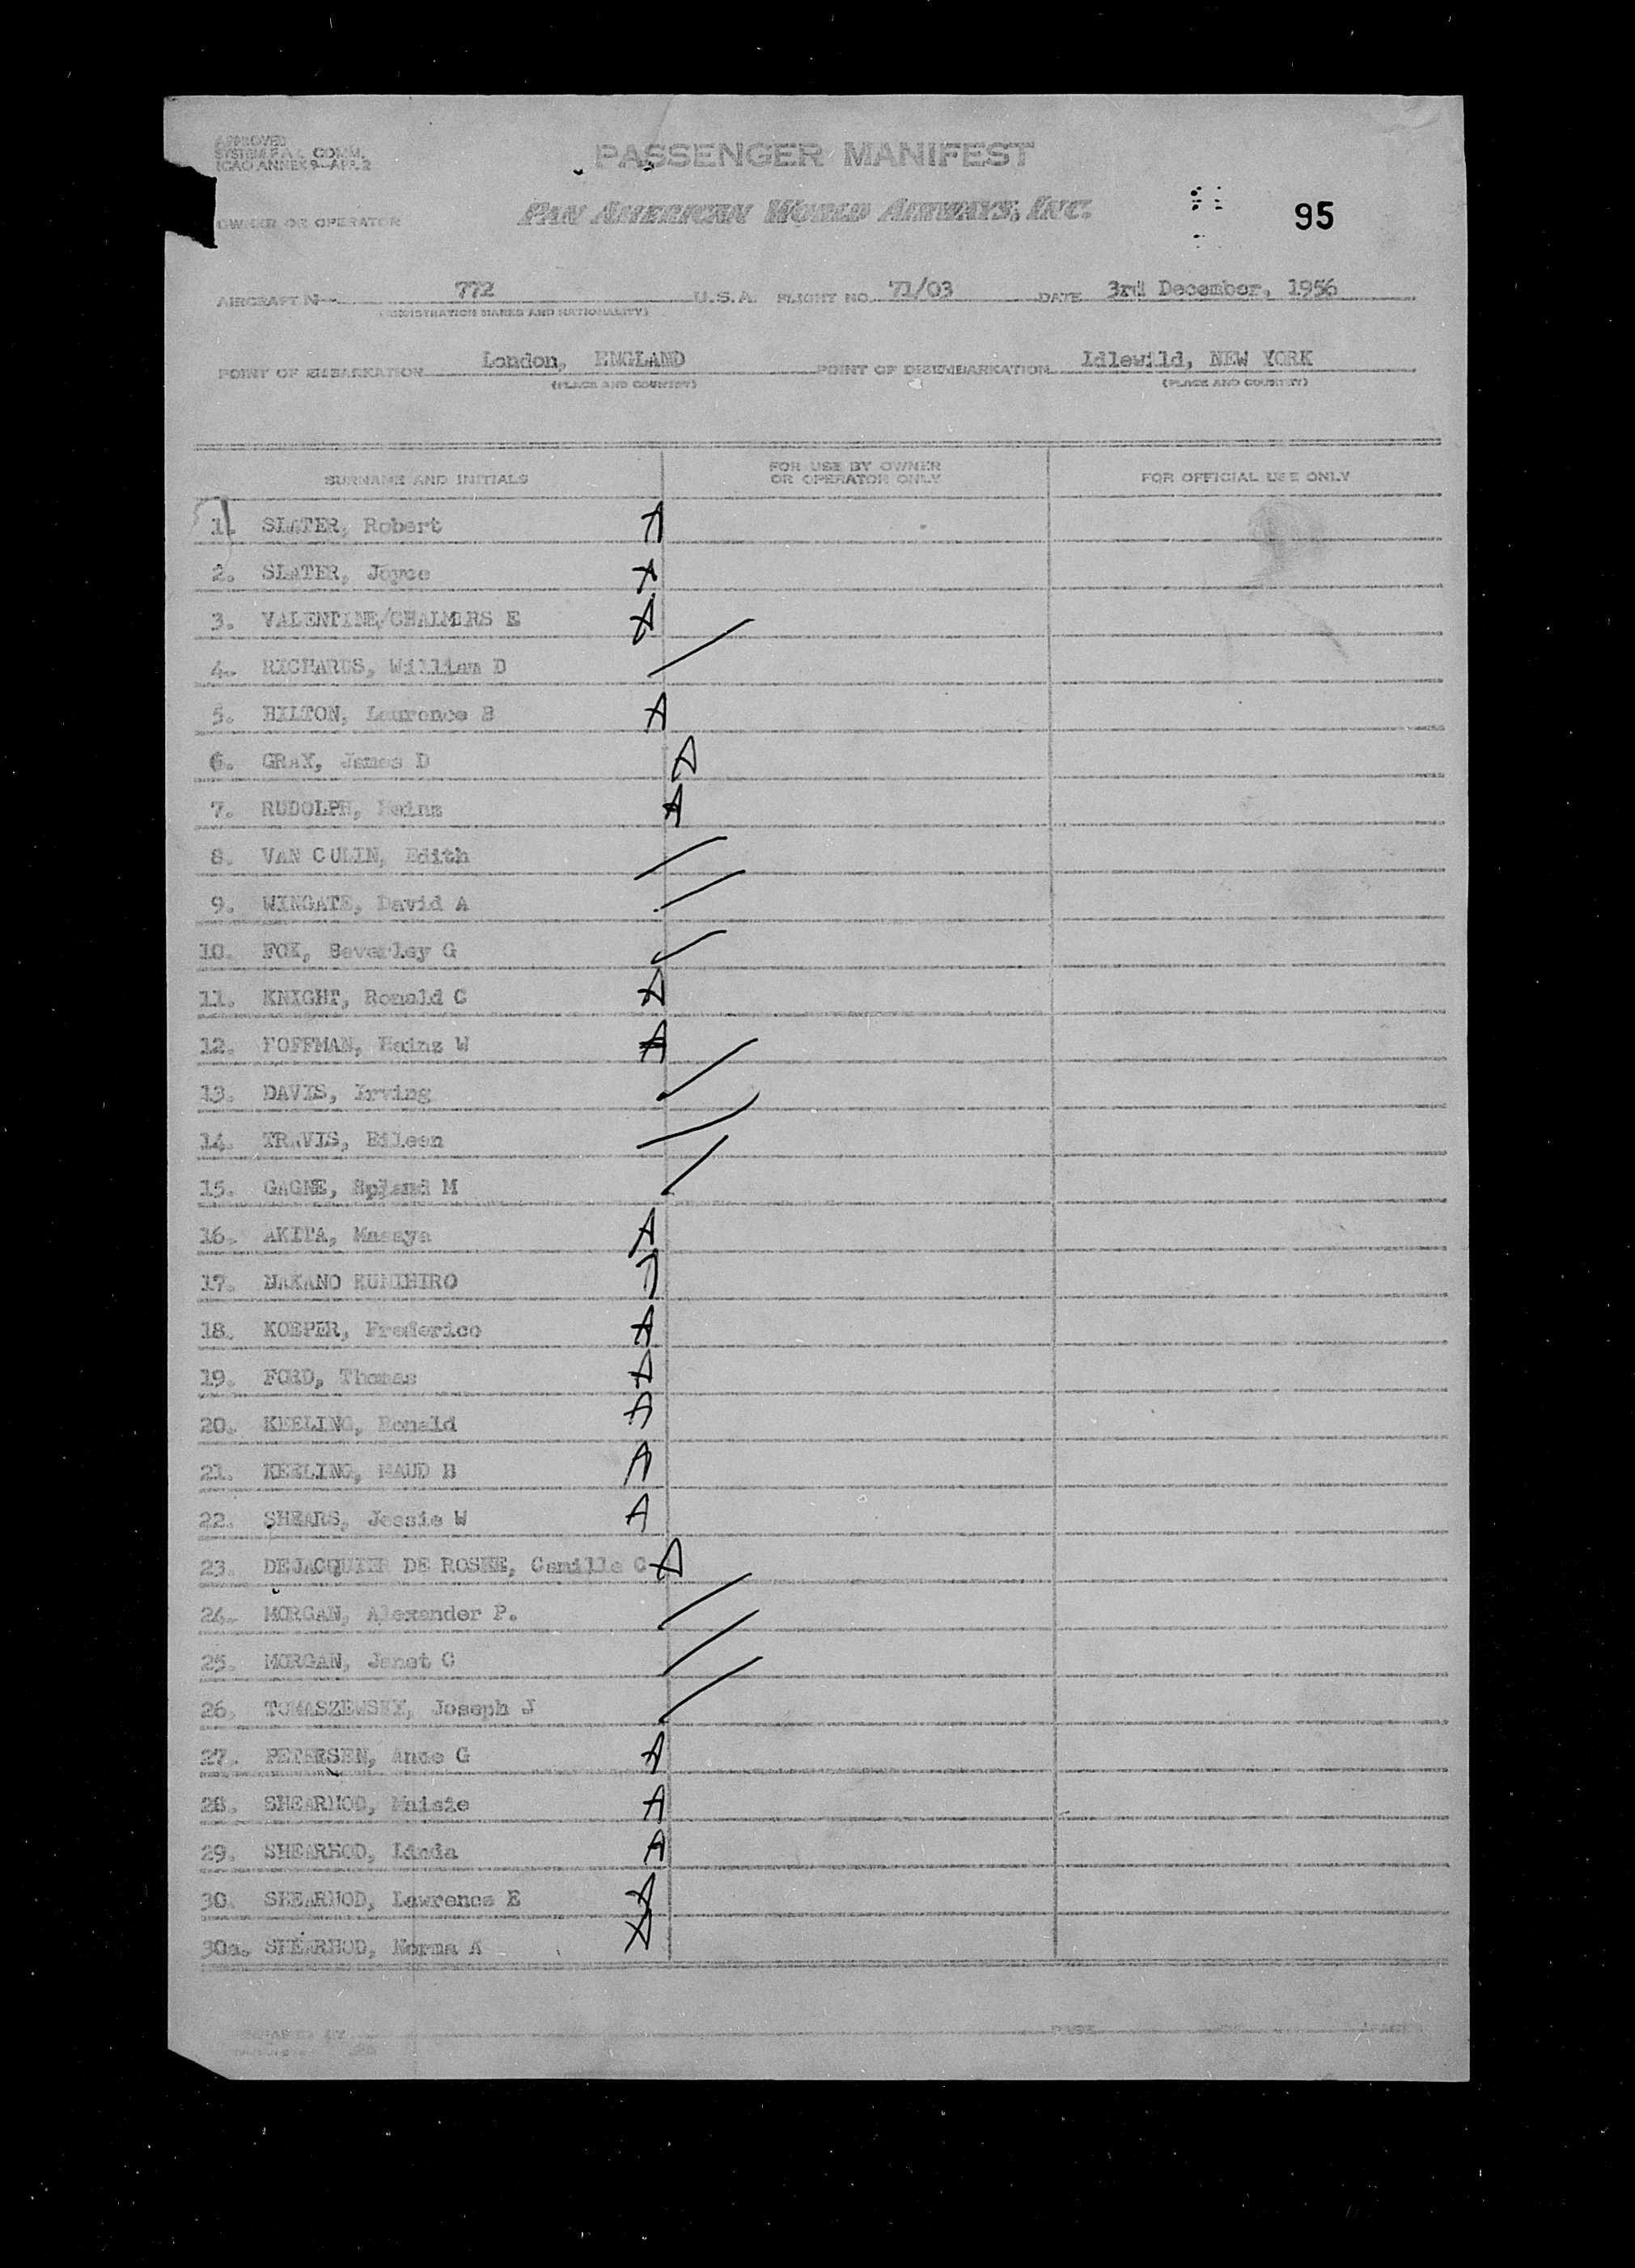 APPROVED
SYSTEM F.A.L. COMM.
ICAO ANNEX 9-APP. 2
PASSENGER MANIFEST
OWNER OR OPERATOR
PAN AMERICAN WORLD AIRWAYS, INC.
95
AIRCRAFT N 772 U.S.A. FLIGHT NO. 71/03 DATE 3rd December, 1956
(REGISTRATION MARKS AND NATIONALITY)
POINT OF EMBARKATION London, ENGLAND POINT OF DISEMBARKATION Idlewild, NEW YORK
(PLACE AND COUNTRY) (PLACE AND COUNTRY)
SURNAME AND INITIALS FOR USE BY OWNER OR OPERATOR ONLY FOR OFFICIAL USE ONLY
1. SLATER, Robert A
2. SLATER, Joyce A
3. VALENTINE/CHALMERS E A
4. RICHARDS, William D
5. HILTON, Laurence B A
6. GRAY, James D A
7. RUDOLPH, Heinz A
8. VAN CULIN, Edith
9. WINGATE, David A
10. FOX, Beverley G
11. KNIGHT, Ronald C A
12. HOFFMAN, Heinz W A
13. DAVIS, Irving
14. TRAVIS, Eileen
15. GAGNE, M
16. AKITA, Masaya A
17. NAKANO KUNIHIRO A
18. KOEPER, Frederico A
19. FORD, Thomas A
20. KEELING, Ronald A
21. KEELING, MAUD B A
22. SHEARS, Jessie W A
23. DEJACQUIER DE ROSEE, Camille C A
24. MORGAN, Alexander P.
25. MORGAN, Janet C
26. TOMASZEWSKY, Joseph J
27. PETERSEN, G A
28. SHEARHOD, Maisie A
29. SHEARHOD, Linda A
30. SHEARHOD, Lawrence E A
30a. SHEARHOD, Norma A A
PAGE